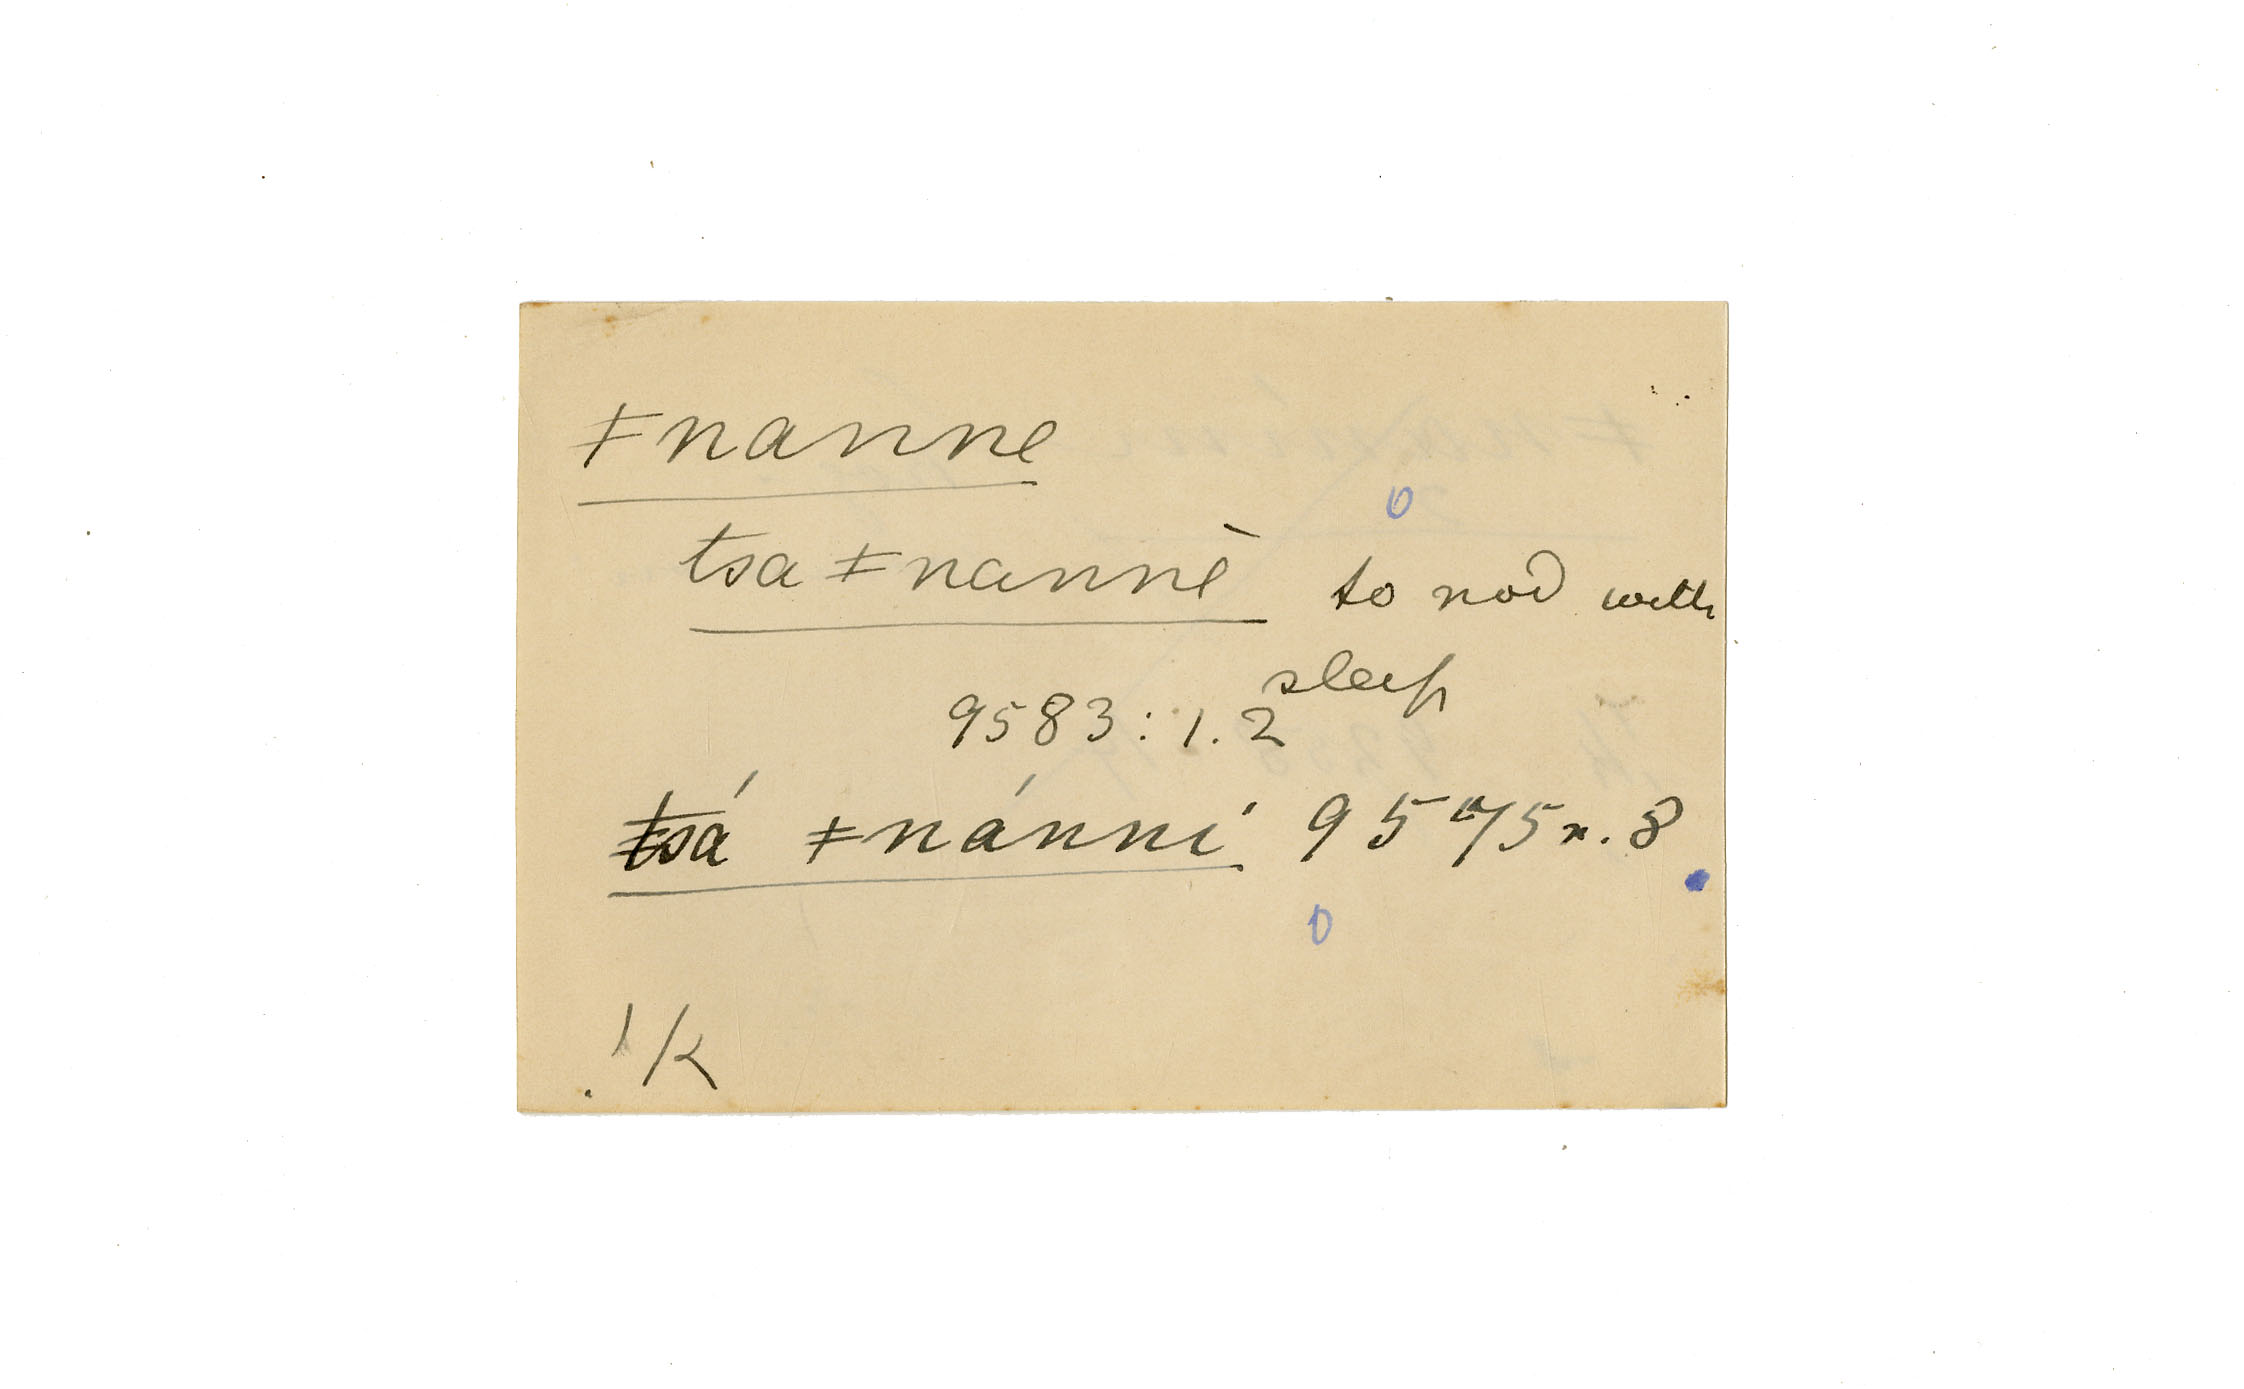 ǂnanne
tsa ǂnannè to nod with
sleep
9583:1.2
tsá ǂnánní 9575n.8
!k